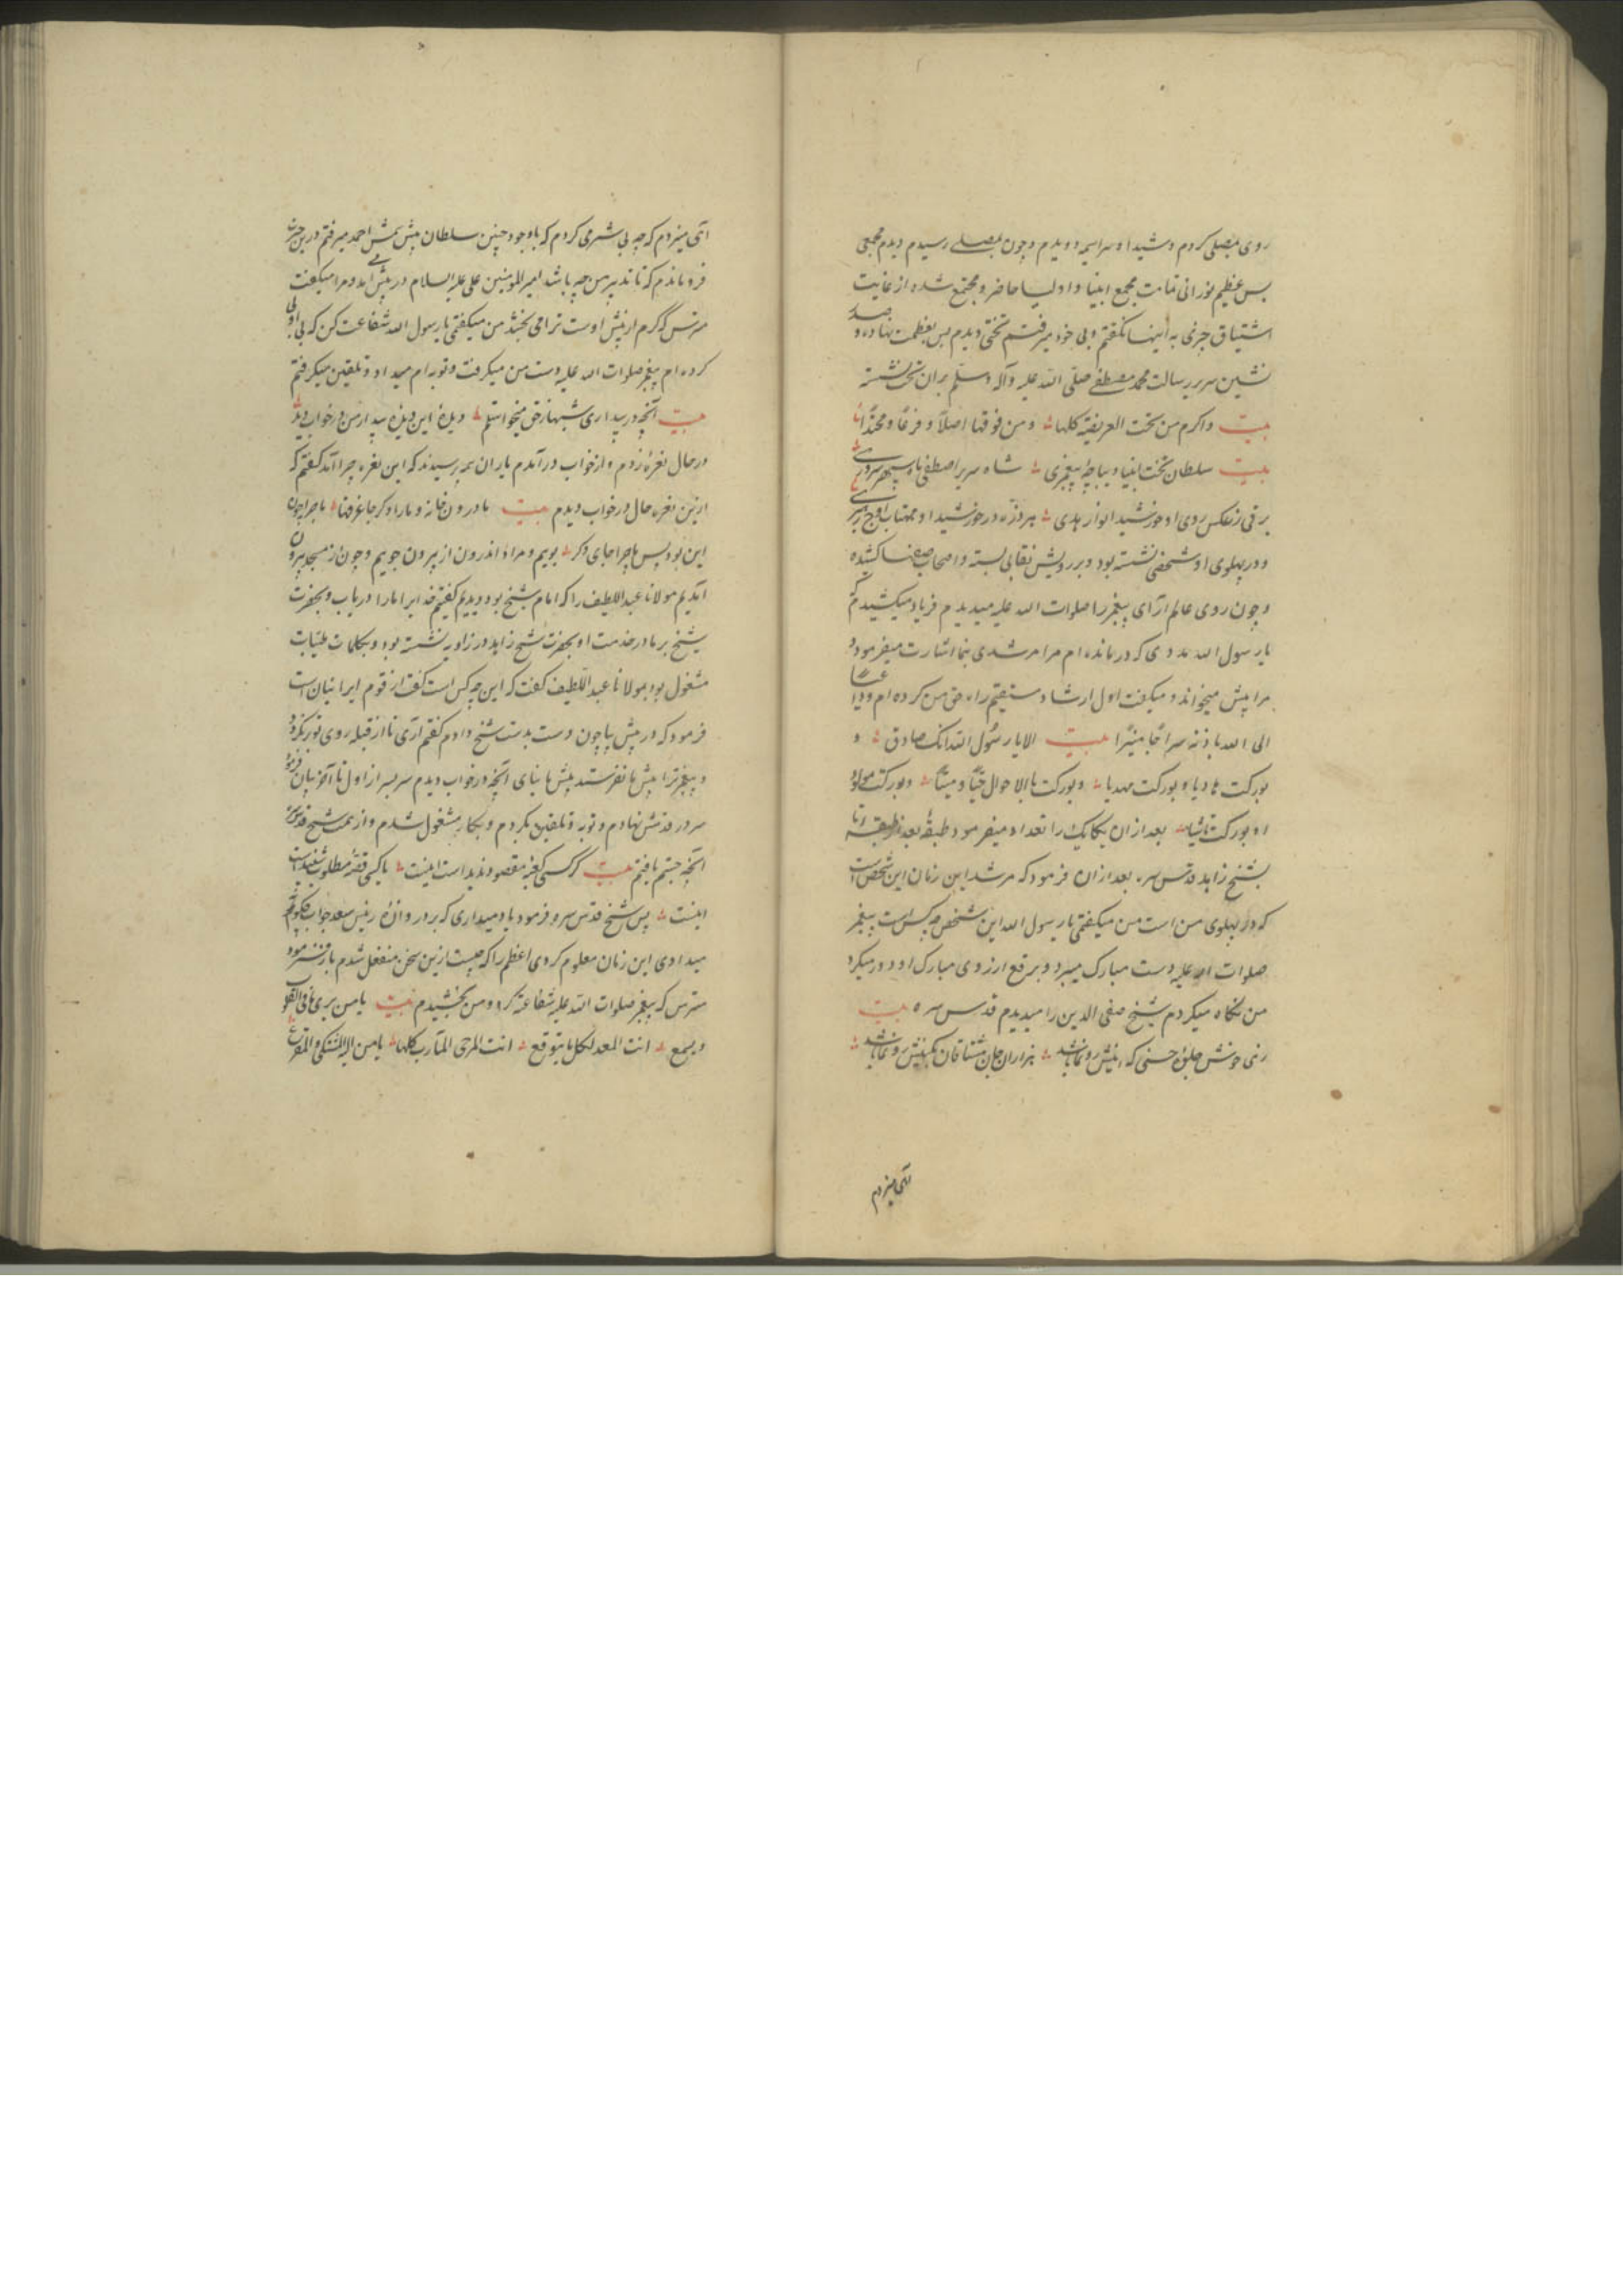 روی بمصلی کردم و شیدا و سراسیمه دویدم و چون بمصلی رسیدم دیدم مجمعی
بس عظیم نورانی تمامت مجمع انبیا و اولیا حاضر و مجتمع شده از غایت
اشتیاق چیزی به اینها نگفتم و بی خود میرفتم تختی دیدم بس بعظمت نهاده و صدر
نشین سریر رسالت محمد مصطفی صلی الله علیه وآله وسلم بران تخت نشسته
بیت واکرم من تحت کلها ومن فوقها اصلاً و فرعاً و محتداً
بیت سلطان تخت انبیا دیباچهٔ پیغمبری شاه سریر اصطفی ماه سپهر سروری
برقی ز عکس روی او خورشید انوار هدی هر ذره در خورشید او مهتاب اوج
و در پهلوی او شخصی نشسته بود و بر رویش نقابی بسته و اصحاب صفها کشیده
و چون روی عالم آرای پیغمبر را صلوات الله علیه میدیدم فریاد میکشیدم که
یا رسول الله مددی که درمانده ام مرا مرشدی بنما اشارت میفرمود و
مرا پیش میخواند و میکفت اول ارشاد مستقیم راه حق من کرده ام
الی الله باذنه سراجا منیرا بیت الا یا رسول الله انک صادق و
بورکت هادیا و بورکت مهدیا و بورکت بالاحوال حیا و میتا و بورکت مولودا
و بورکت ناشیا بعد ازان یکایک را تعداد میفرمود طبقهٔ بعد از طبقه تا
بشیخ زاهد قدس سره بعد ازان فرمود که مرشد این زمان این شخص است
که در پهلوی من است من میکفتمی یا رسول الله این شخص چه کس است پیغمبر
صلوات الله علیه دست مبارک میبرد و برقع از روی مبارک او دور میکرد
من نگاه میکردم شیخ صفی الدین را میدیدم قدس سره بیت
زهی خوش جلوهٔ حسنی که اینش رونما باشد هزاران جان مشتاقان کمینش رونما باشد
اتی میزدم که چه بی شرمی کردم که باوجود چنین سلطان پیش شمس احمد میرفتم درین حیرت
فرو ماندم که تا تدبیر من چه باشد امیرالمومنین علی علیه السلام در پیش آمد و مرا میکفت
مترس که کرم از پیش اوست ترا می بخشد من میکفتمی یا رسول الله شفاعت کن که بی ادبی
کرده ام پیغمبر صلوات الله علیه دست من میکرفت و توبه ام میداد و تلقین میکرفتم
بیت آنچه در بیداری شبها ز حق میخواستم دیدهٔ این دیدهٔ بیدار من در خواب دید
در حال نعرهٔ زدم و از خواب در آمدم یاران همه پرسیدند که این نعره چرا آمد کفتم که
ازین نعره حال در خواب دیدم بیت ما درون خانه و ما را دکر جا غرفها ماجرا چون
این بود پس ماجرا جای دکر بویم و مراد اندرون از بیرون جویم و چون از مسجد بیرون
آمدیم مولانا عبداللطیف را که امام شیخ بود دیدیم کفتیم خدایرا ما را دریاب و بحضرت
شیخ بر ما در خدمت او بحضرت شیخ زاهد در زاویه نشسته بود و بکلمات طیبات
مشغول بود بمولانا عبداللطیف کفت که این چه کس است کفت از قوم ایرانیان است
فرمود که در پیش بیا چون دست بدست شیخ دادم کفتم آری تا از قبله روی تو نکرد
و پیغمبر ترا پیش ما نفرستد پیش ما نیای آنچه در خواب دیدم سربسر از اول تا آخر بیان فرمود
سر در قدمش نهادم و توبه و تلقین بکردم و بکار مشغول شدم و از همت شیخ قدس سره
آنچه جستم یافتم بیت کر کسی کعبهٔ مقصود ندید است اینست یا کسی قصهٔ مطلوب شنید است
اینست پس شیخ قدس سره فرمود یاد میداری که بر دروازهٔ رئیس سعد جواب
میدادی این زمان معلوم کردی اعظم را که چیست ازین سخن منفعل شدم باز فرمود
مترس که پیغمبر صلوات الله علیه شفاعت کرد و من بخشیدم بیت یا من یری ما فی القلوب
ویسمع انت المعد لکل ما یتوقع انت المرجی المآرب کلها یا من الیه المشتکی والمفزع